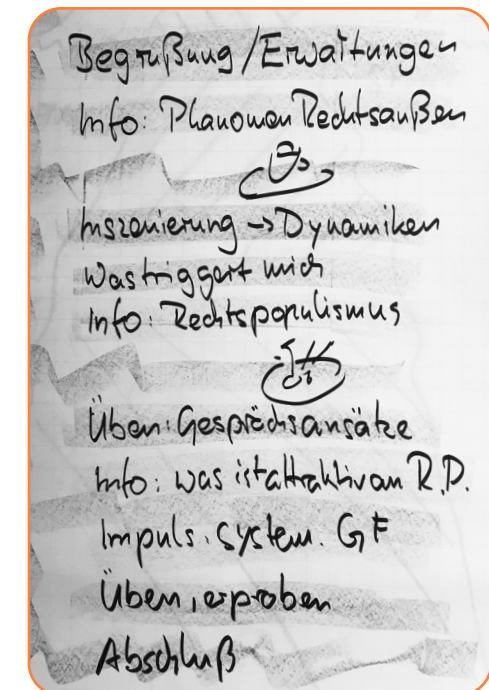 Begrüßung / Erwartungen
Info: Phänomen Rechtsaußen
Inszenierung -> Dynamiken
Was triggert mich
Info: Rechtspopulismus
Üben: Gesprächsansätze
Info: was ist attraktiv an R.D.
Impuls. System. GF
Üben, erproben
Abschluß